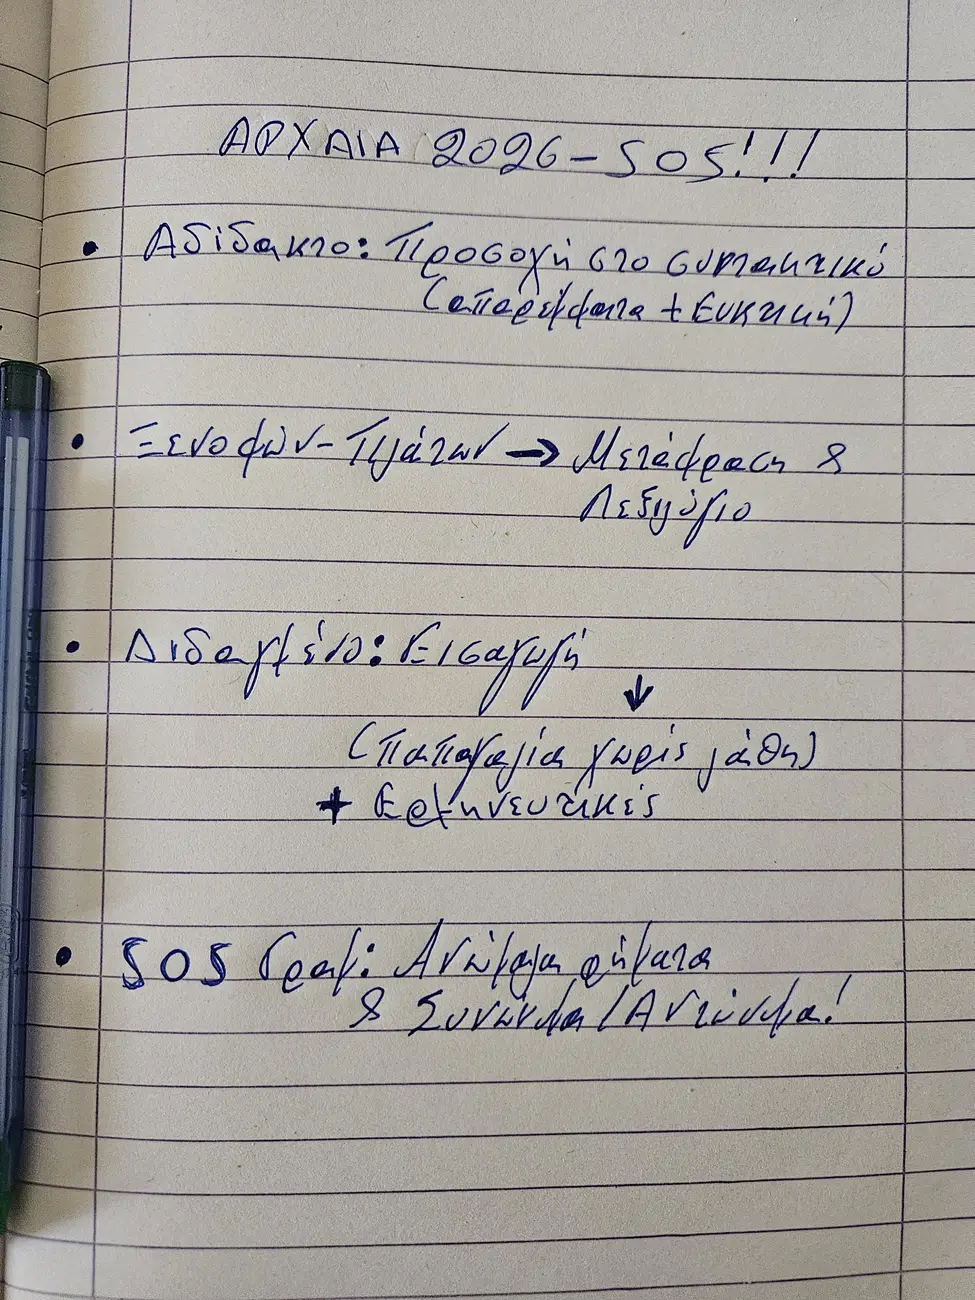 ΑΡΧΑΙΑ 2026 - SOS!!!
• Αδίδακτο: Προσοχή στο συντακτικό
(απαρέμφατα + Ευκτική)
• Ξενοφών - Πλάτων → Μετάφραση &
Λεξιλόγιο
• Διδαγμένο: Εισαγωγή
↓
(παπαγαλία χωρίς λάθη)
+ Ερμηνευτικές
• SOS Γραμ: Ανώμαλα ρήματα
& Συνώνυμα / Αντώνυμα!